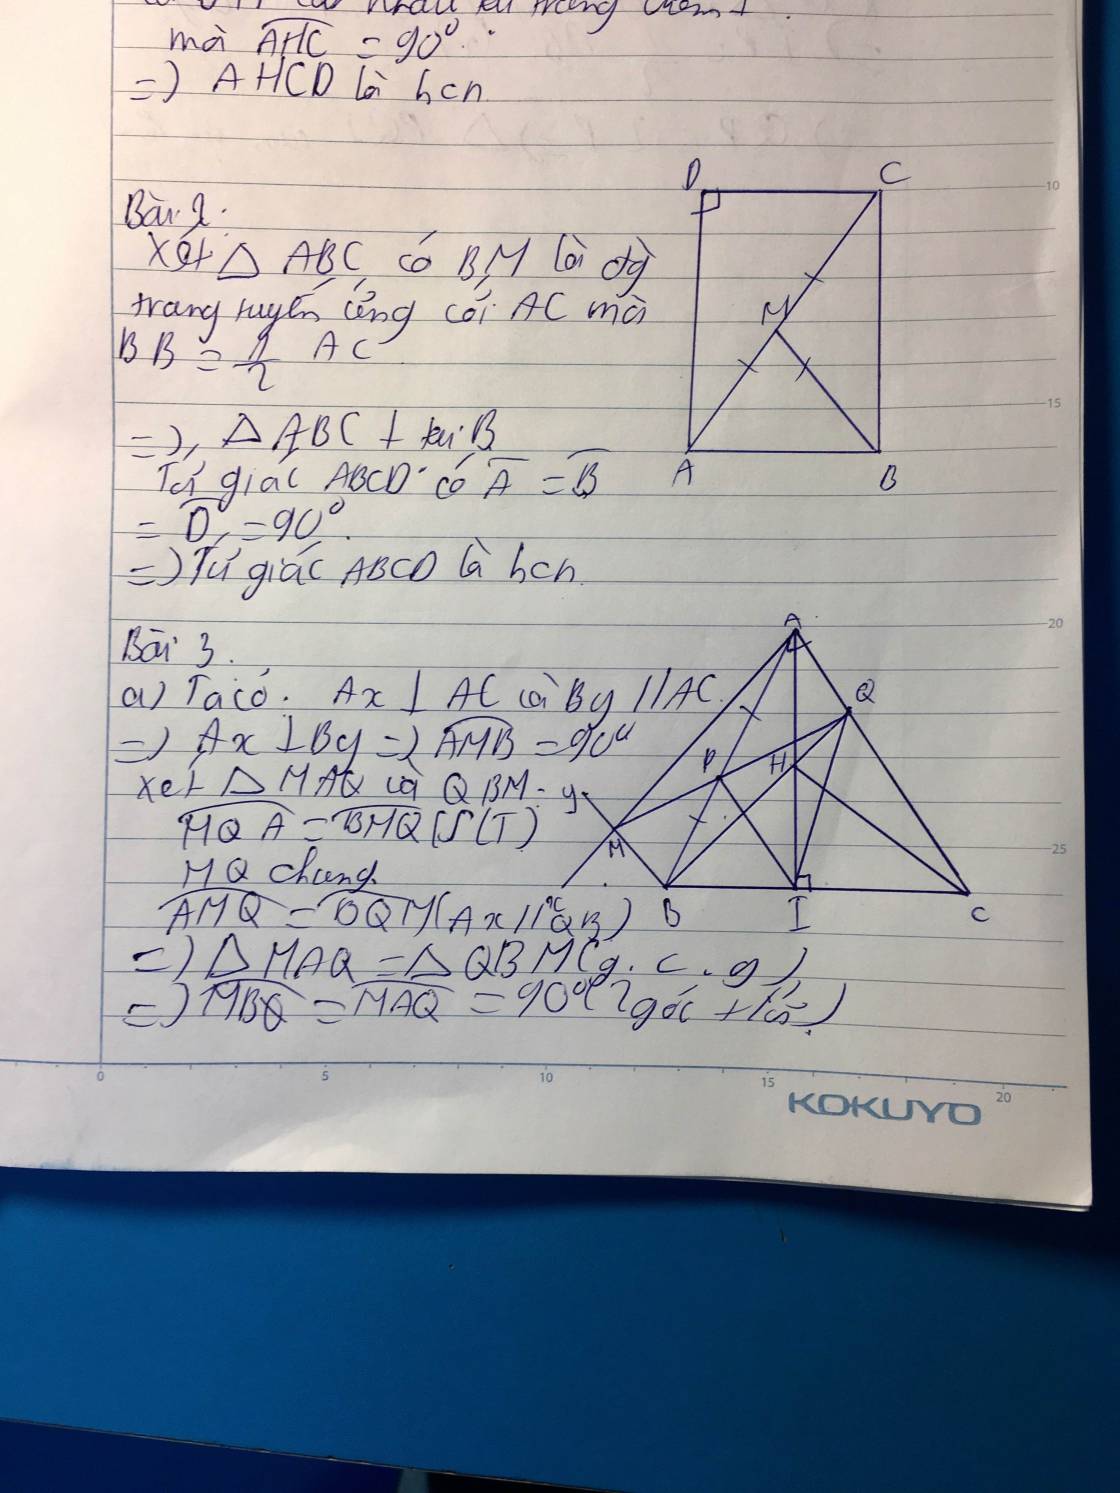 mà AHC = 90°.
=) AHCD là hcn
Bài 2.
Xét △ ABC có BM là đg
trung tuyến ứng với AC mà
BB = 1/2 AC
=) △ ABC ⊥ tại B
Tứ giác ABCD có A = B
= D = 90°.
=) Tứ giác ABCD là hcn
D C
M
A B
Bài 3.
a) Ta có. Ax ⊥ AC và By // AC.
=) Ax ⊥ By =) AMB = 90°
xét △ MAQ và QBM.
MQA = BMQ (SLT)
MQ chung
AMQ = BQM (Ax // QB)
=) △ MAQ = △ QBM (g.c.g)
=) MBQ = MAQ = 90° (2 góc t/ứ)
A
Q
P H
y
M
x B I C
10
15
20
25
0 5 10 15 20
KOKUYO